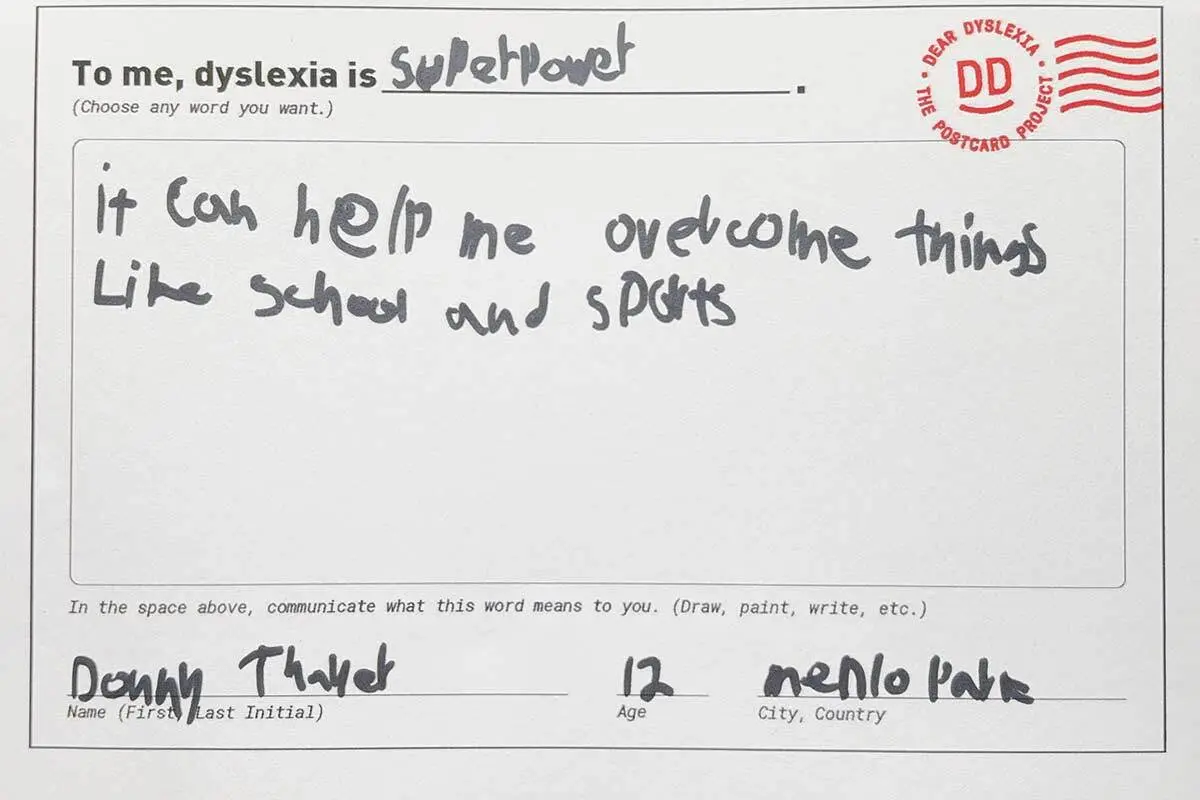 To me, dyslexia is superpower.
(Choose any word you want.)
· DEAR DYSLEXIA · THE POSTCARD PROJECT
DD
it can help me overcome things
Like school and sports
In the space above, communicate what this word means to you. (Draw, paint, write, etc.)
Donny Thayer
12
menlo Park
Name (First, Last Initial)
Age
City, Country